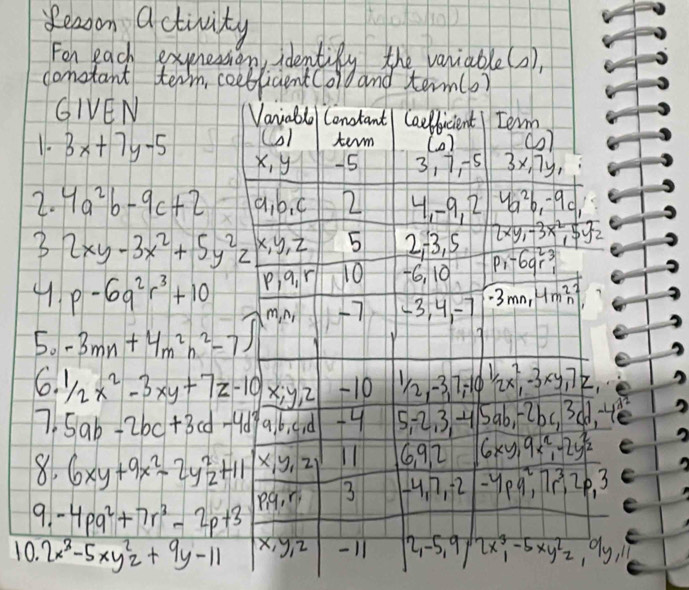 Lesson Activity
For each expression, identify the variable(s),
constant term, coefficient(s) and term(s)
GIVEN Variable(s) Constant term Coefficient(s) Term(s)
1. 3x+7y-5 x, y -5 3, 7, -5 3x, 7y,
2. 4a²b-9c+2 a, b, c 2 4, -9, 2 4a²b, -9c,
3 2xy-3x²+5y²z x, y, z 5 2, -3, 5 2xy, -3x², 5y²z
4. p-6q²r³+10 p, q, r 10 -6, 10 p, -6q²r³,
5. -3mn+4m²n²-7 m, n, -7 -3, 4, -7 -3mn, 4m²n²,
6. 1/2x²-3xy+7z-10 x, y, z -10 1/2, -3, 7, -10 1/2x², -3xy, 7z,
7. 5ab-2bc+3cd-4d² a, b, c, d -4 5, -2, 3, -4 5ab, -2bc, 3cd, -4d²
8. 6xy+9x²-2y²z+11 x, y, z 11 6, 9, 2 6xy, 9x², -2y²z
9. -4pq²+7r³-2p+3 p, q, r, 3 -4, 7, -2 -4pq², 7r³, 2p, 3
10. 2x³-5xy²z+9y-11 x, y, z -11 2, -5, 9 2x³, -5xy²z, 9y, 11